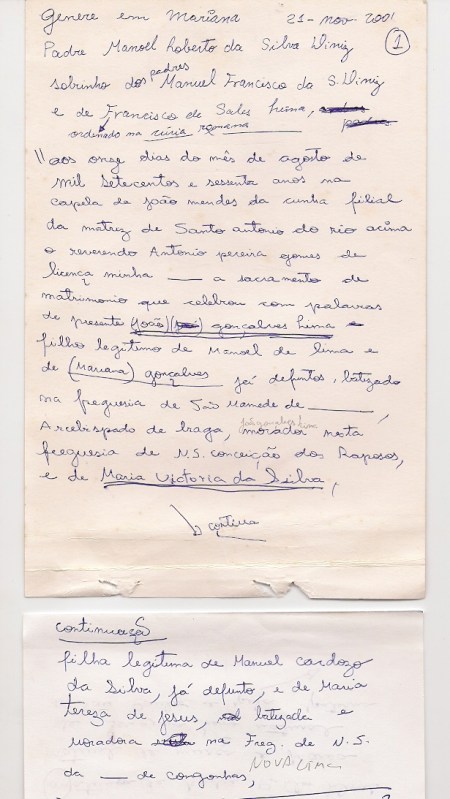 Genere em Mariana 21-nov. 2001
Padre Manoel Roberto da Silva Diniz ①
sobrinho dos padres Manuel Francisco da S. Diniz
e de Francisco de Sales Lima,
ordenado na cúria romana
"aos onze dias do mês de agosto de
mil setecentos e sessenta anos na
capela de João mendes da cunha filial
da matriz de Santo antonio do rio acima
o reverendo Antonio pereira gomes de
licença minha ___ a sacramento de
matrimonio que celebrou com palavras
de presente (João) gonçalves Lima
filho legitimo de Manoel de lima e
de (Mariana) gonçalves já defuntos, batizado
na freguesia de São Mamede de ______,
João gonçalves Lima
Arcebispado de braga, morador nesta
freguesia de N.S. conceição dos Raposos,
e de Maria Victoria da Silva,
continua
continuação
filha legitima de Manuel cardozo
da Silva, já defunto, e de Maria
tereza de jesus, batizada e
moradora na Freg. de N.S.
da ___ de congonhas,
NOVA LIMA